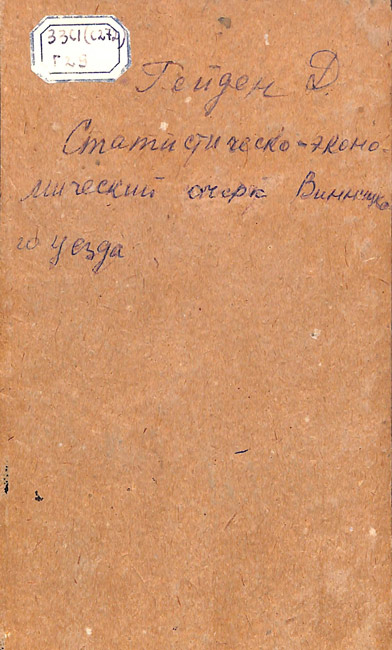 33С1(С272)
Г29
Гейден Д.
Статистическо-эконо-
мический очерк Винницко
го уезда